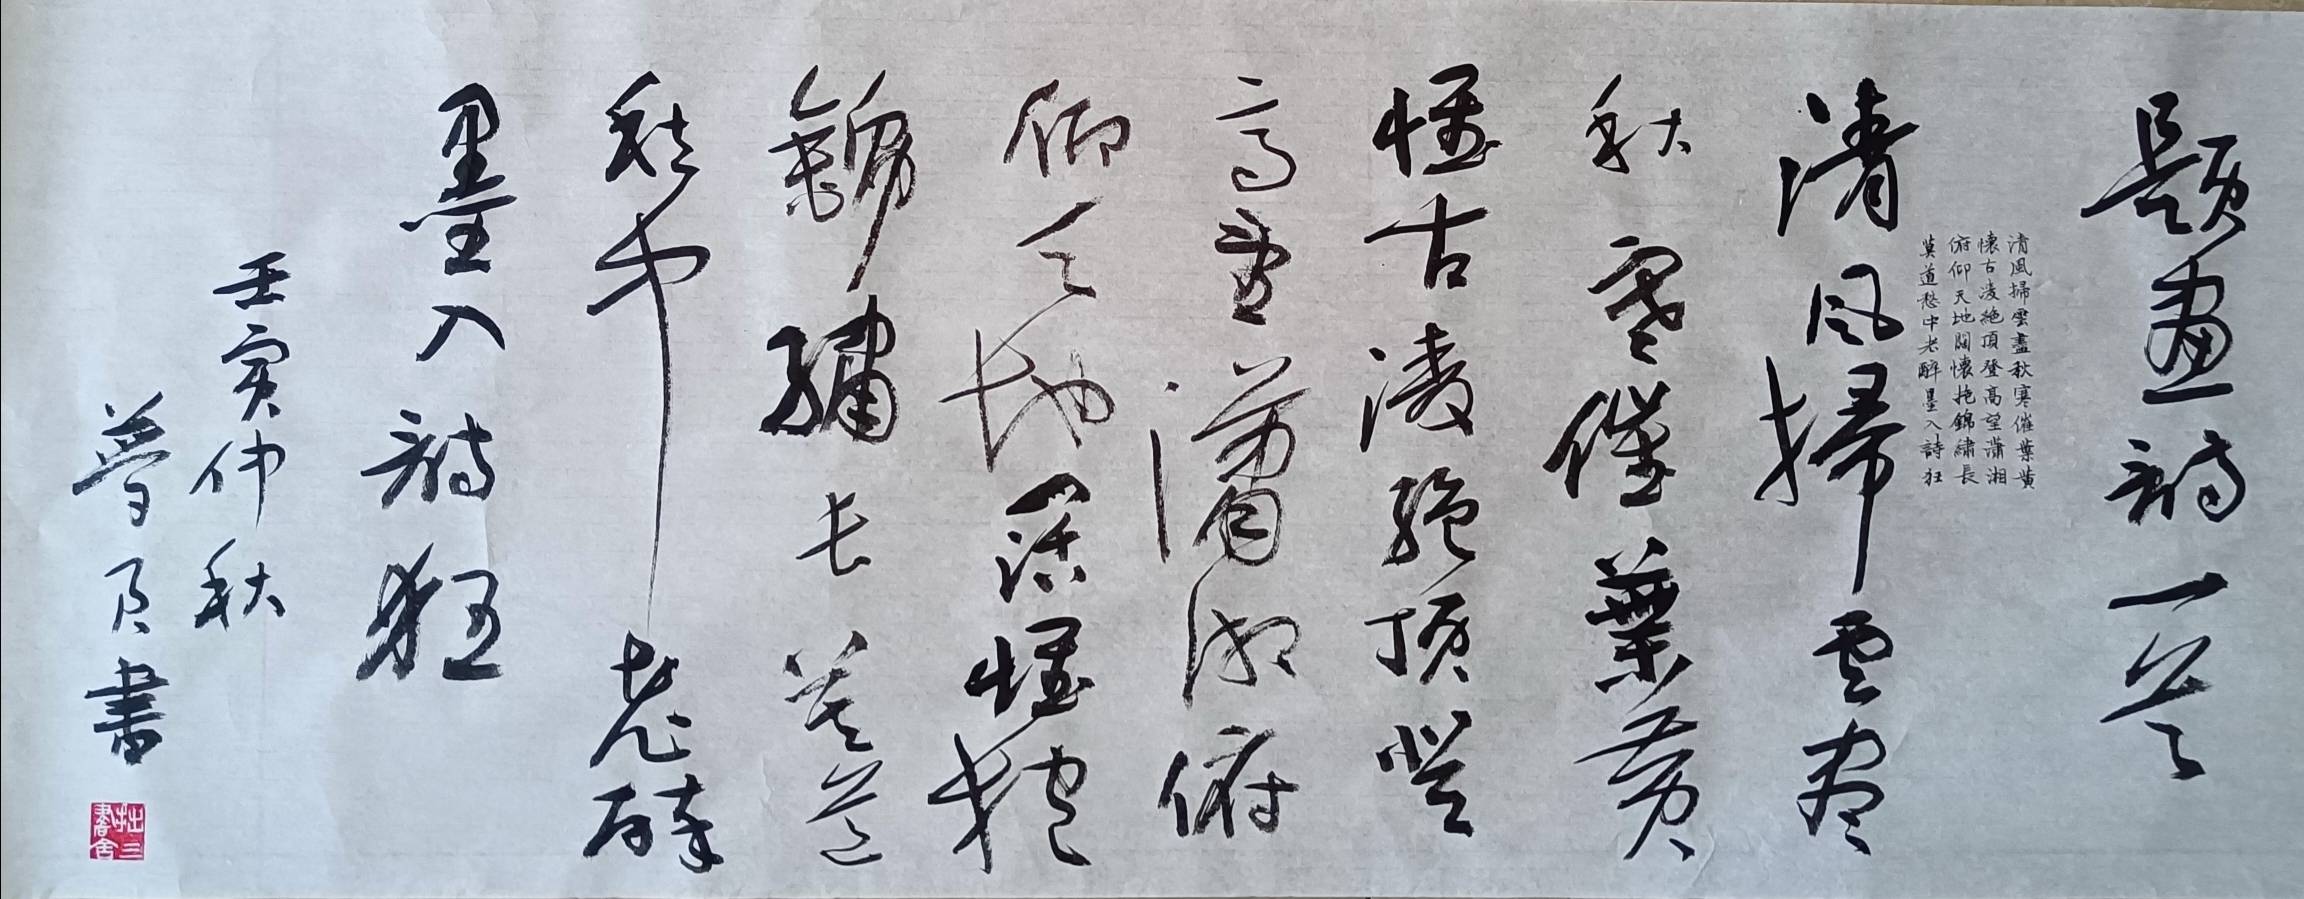 題畫詩一首
清風掃雲盡秋寒催葉黄
懷古凌絶頂登高望瀟湘
俯仰天地闊懷抱錦繡長
莫道愁中老醉墨入詩狂
清風掃雲盡
秋寒催葉黄
懷古凌絶頂登
高望瀟湘俯
仰天地闊懷抱
錦繡长莫道
愁中老醉
墨入詩狂
壬寅仲秋
夢良書
拙三
書舍